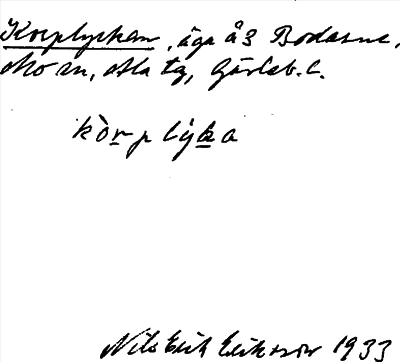 Korplyckan, äga å 3 Bodarne,
Mo sn, Ala tg, Gävleb. l.
kòrplýka
Nils Erik Eriksson 1933